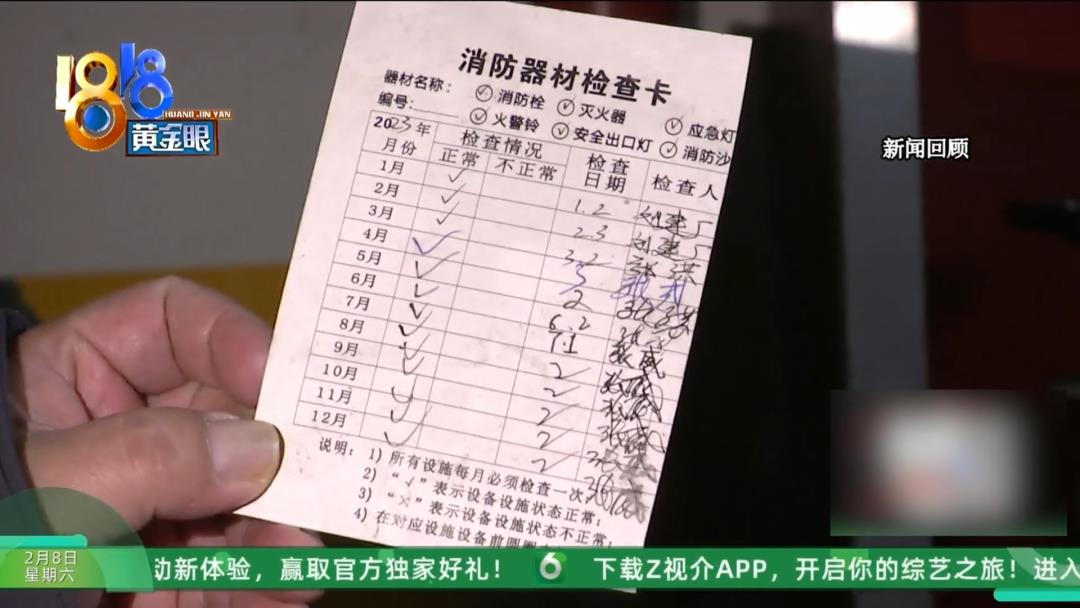 1818
HUANG JIN YAN
黄金眼
新闻回顾
消防器材检查卡
器材名称： 消防栓 灭火器 应急灯
编号： 火警铃 安全出口灯 消防沙
2023年 检查情况 检查日期 检查人
月份 正常 不正常
1月 ✓ 1.2 刘建厂
2月 ✓ 2.3 刘建厂
3月 ✓ 3.2
4月 ✓
5月 ✓ 2
6月 ✓ 6.2
7月 ✓ 7.1 张威
8月 ✓ 2
9月 ✓ 2
10月 ✓ 2
11月 ✓ 2
12月 ✓
说明：1）所有设施每月必须检查一次；
2）“√”表示设备设施状态正常；
3）“×”表示设备设施状态不正常；
4）在对应设施设备前圆圈
2月8日
星期六
动新体验，赢取官方独家好礼！ 6 下载Z视介APP，开启你的综艺之旅！进入